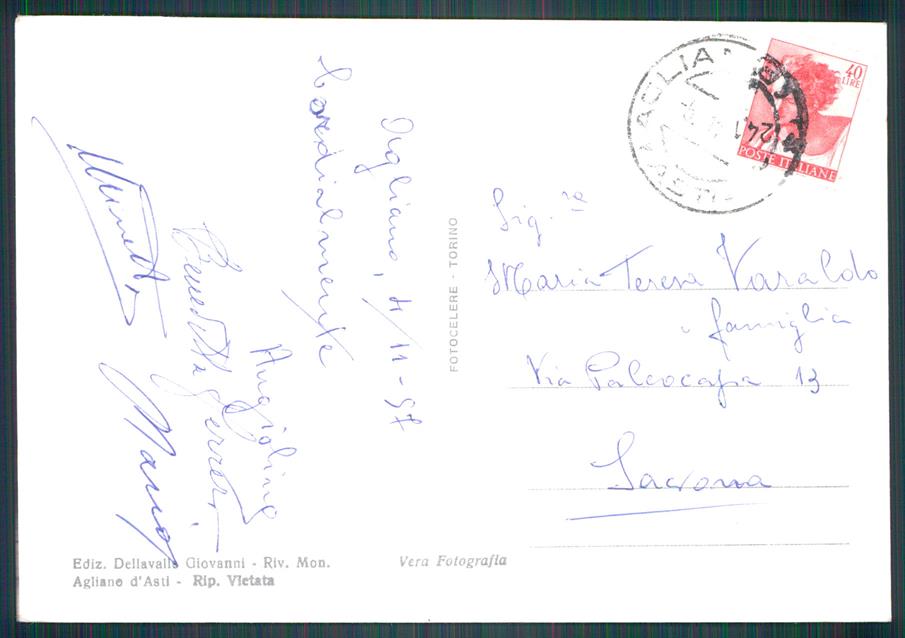 Agliano, 4/11-97
Cordialmente
Angiolina
Benedetta Ferrero
Mario
FOTOCELERE - TORINO
40
LIRE
POSTE ITALIANE
AGLIANO
Sig.ra
Maria Teresa Varaldo
famiglia
Via Paleocapa 13
Savona
Ediz. Dellavalle Giovanni - Riv. Mon.
Agliano d'Asti - Rip. Vietata
Vera Fotografia